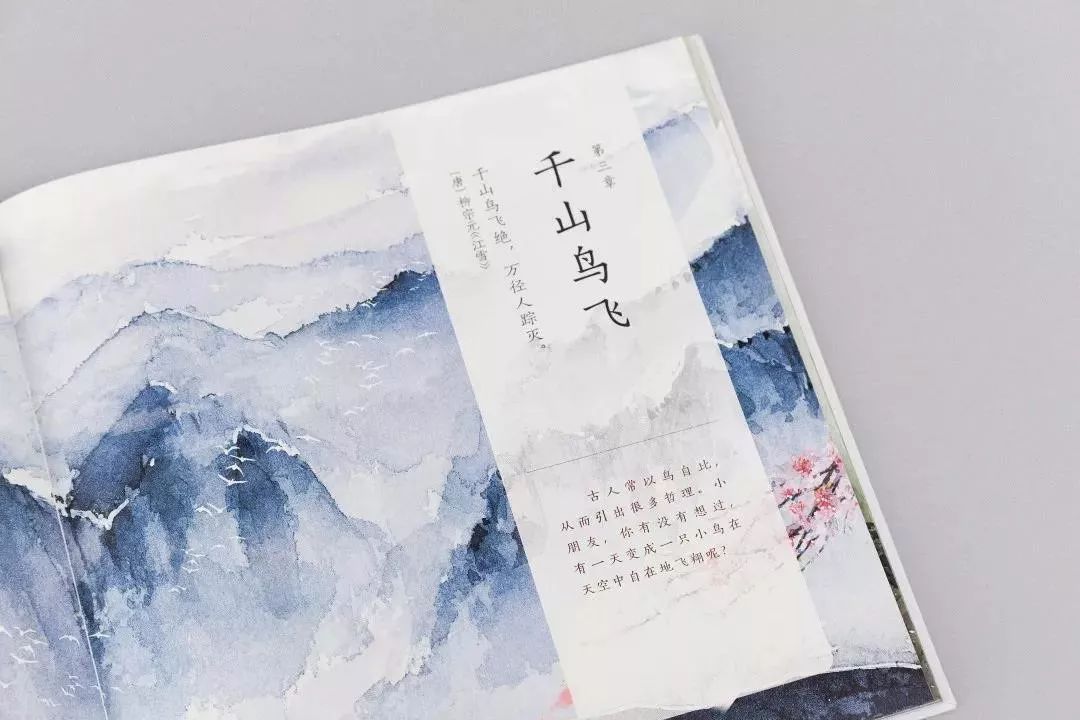 第三章
千山鸟飞
千山鸟飞绝，万径人踪灭。
[唐]柳宗元《江雪》
古人常以鸟自比，
从而引出很多哲理。小
朋友，你有没有想过，
有一天变成一只小鸟在
天空中自在地飞翔呢？